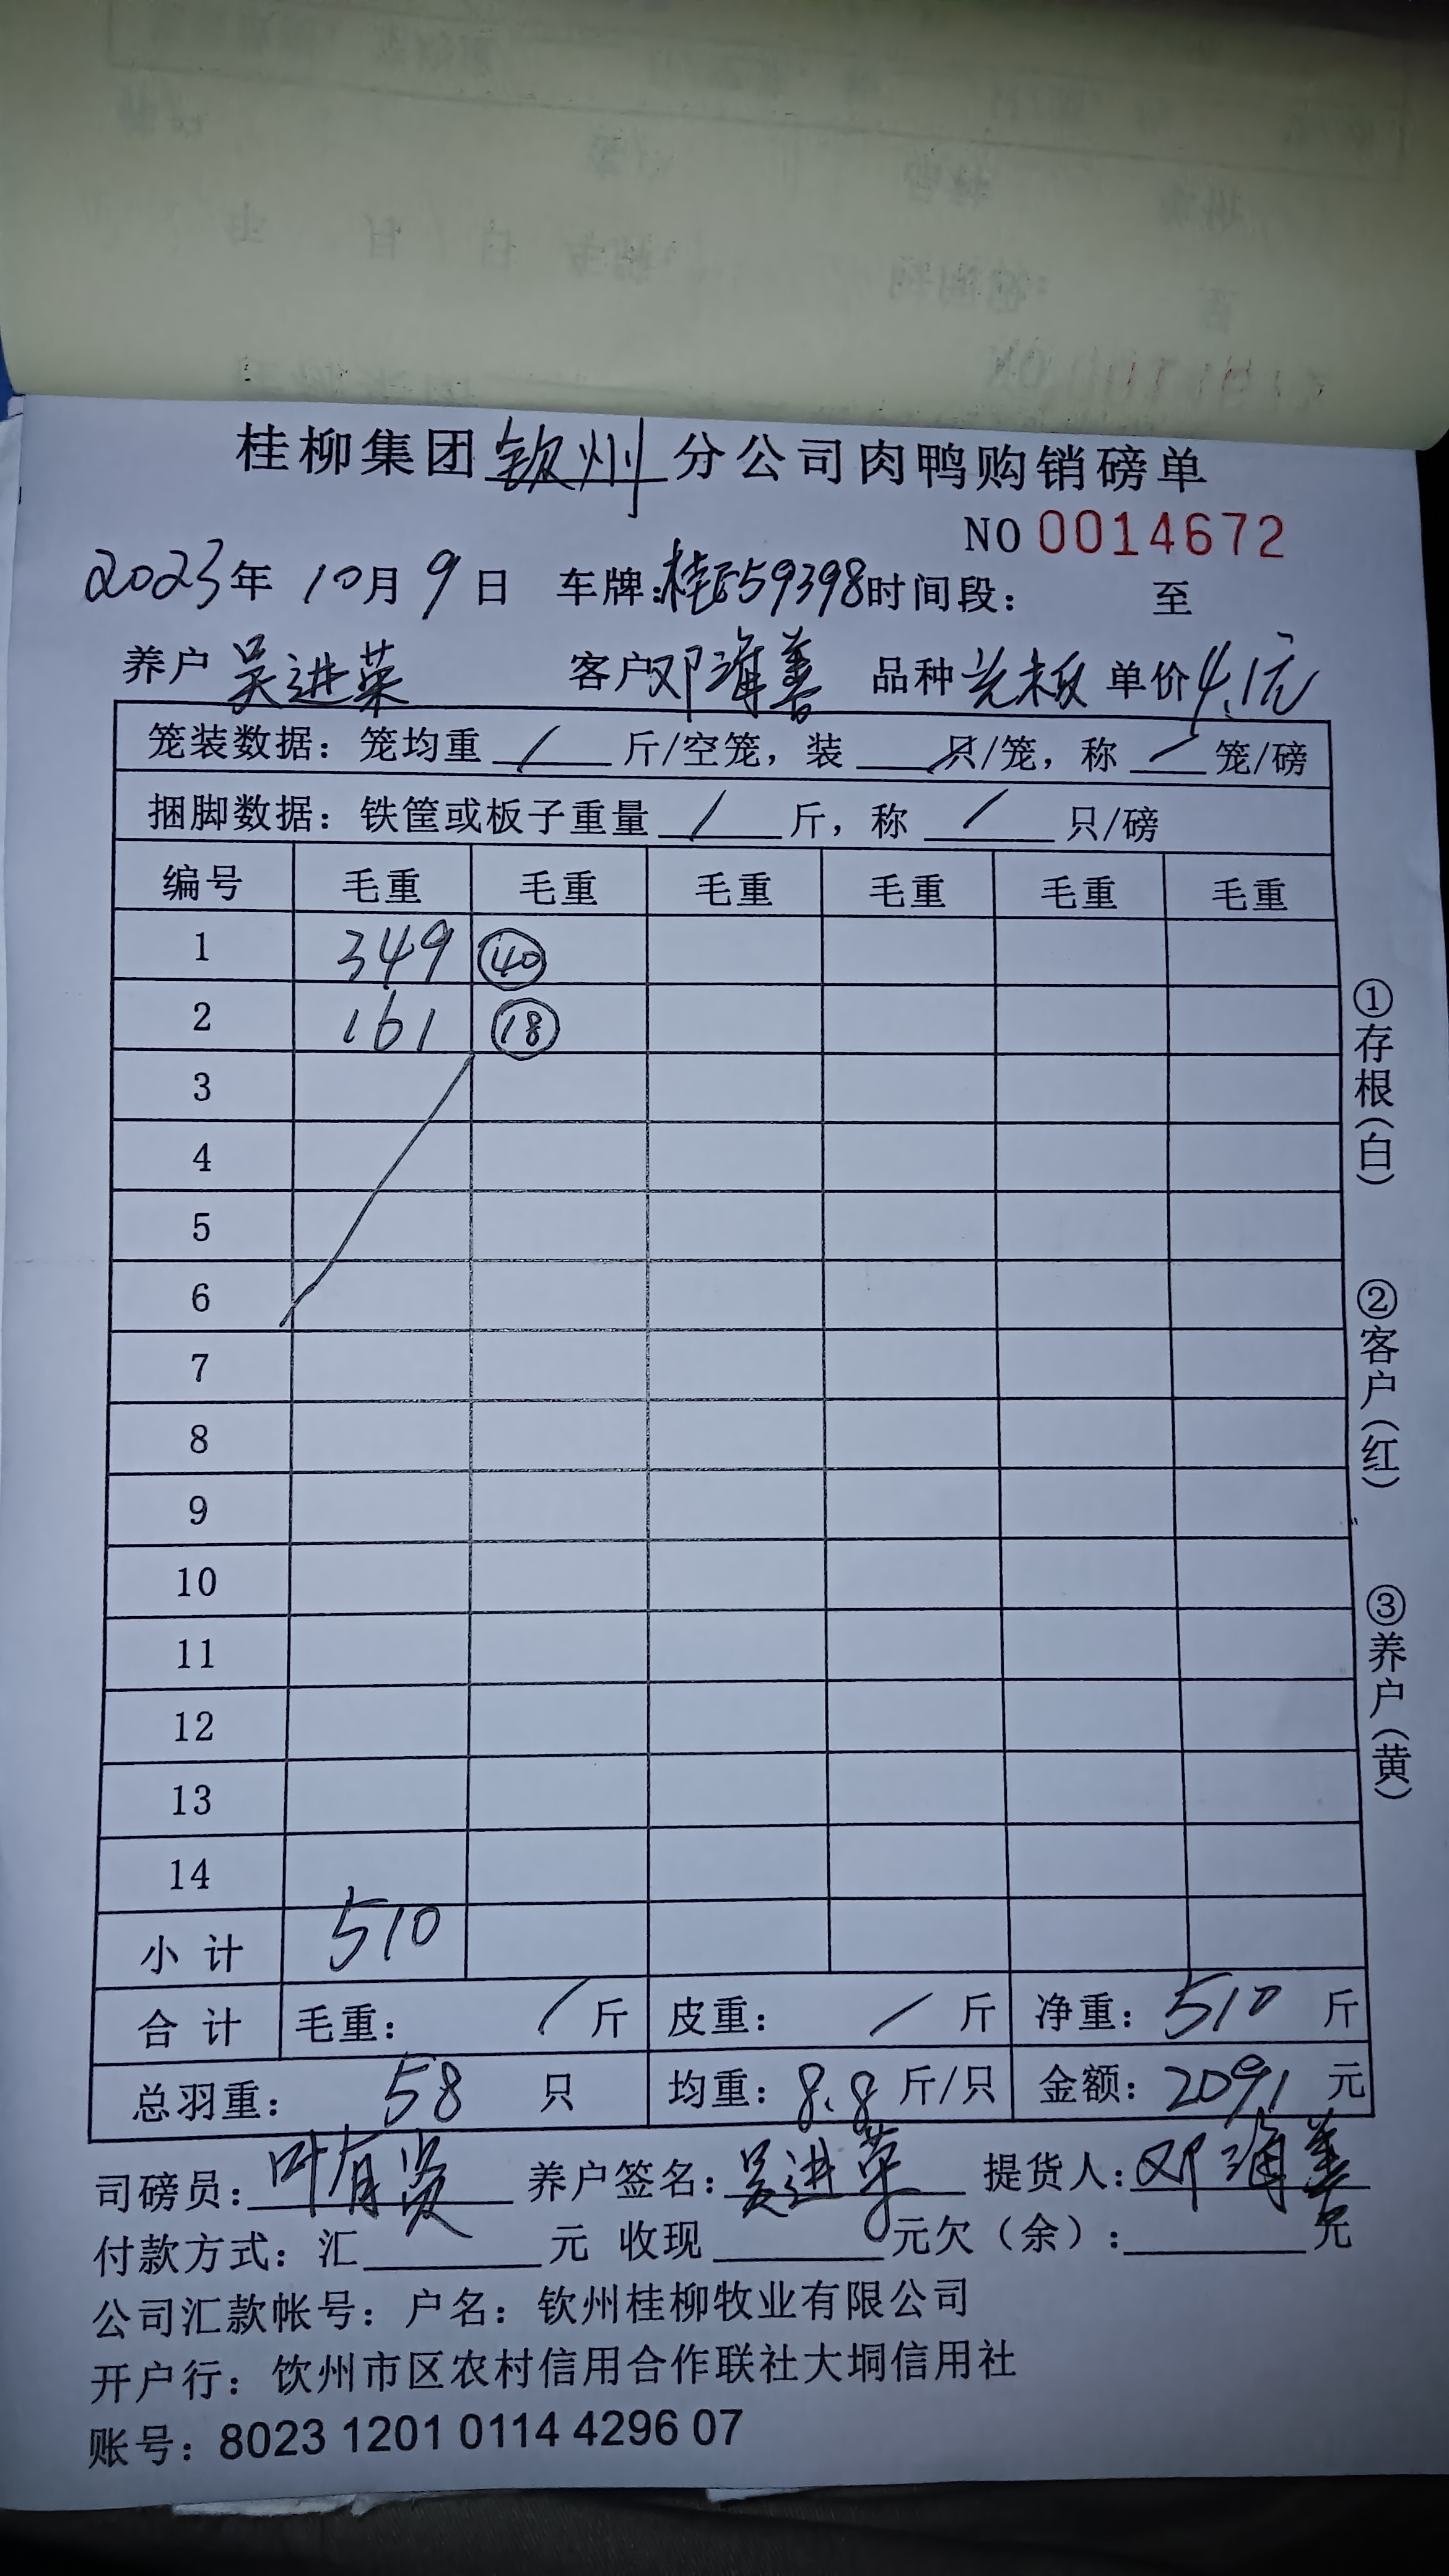 桂柳集团钦州分公司肉鸭购销磅单
NO 0014672
2023年 10月 9日 车牌:桂E59398时间段: 至
养户 吴进荣 客户邓海善 品种 单价4.1元
笼装数据: 笼均重 / 斤/空笼, 装 / 只/笼, 称 / 笼/磅
捆脚数据: 铁筐或板子重量 / 斤, 称 / 只/磅
编号 毛重 毛重 毛重 毛重 毛重 毛重
1 349 ㊵
2 161 ⑱
3
4
5
6
7
8
9
10
11
12
13
14
小计 510
合计 毛重: / 斤 皮重: / 斤 净重: 510 斤
总羽重: 58 只 均重: 8.8 斤/只 金额: 2091 元
司磅员: 叶有贤 养户签名: 吴进荣 提货人: 邓海善
付款方式: 汇 元 收现 元欠(余): 元
公司汇款帐号: 户名: 钦州桂柳牧业有限公司
开户行: 钦州市区农村信用合作联社大垌信用社
账号: 8023 1201 0114 4296 07
①存根(白)
②客户(红)
③养户(黄)